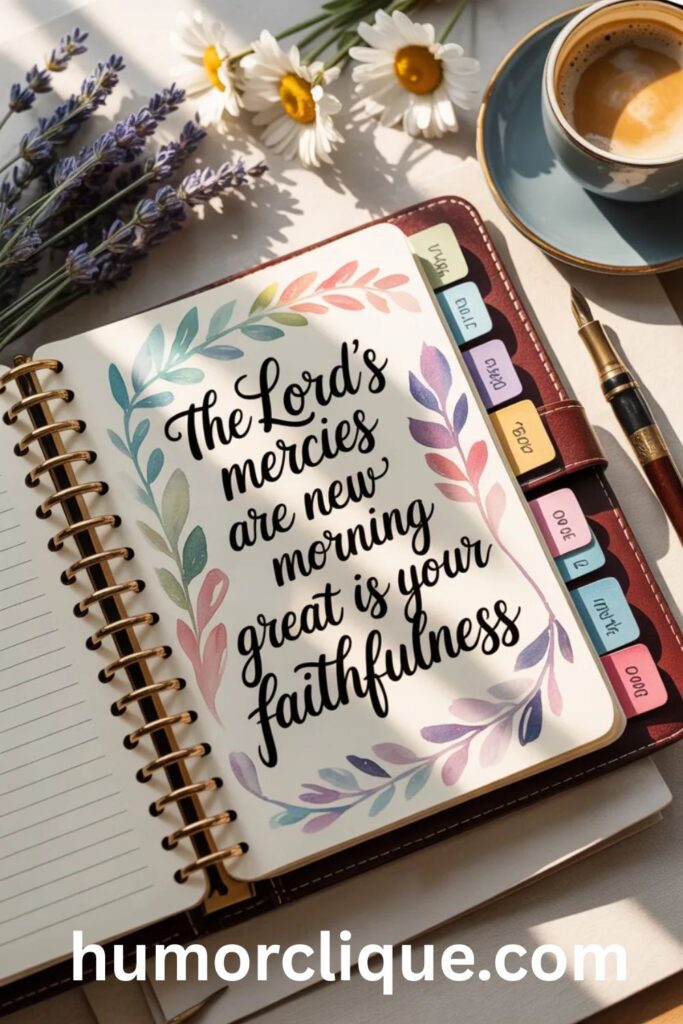 The Lord's
mercies
are new
morning
great is your
faithfulness
humorclique.com